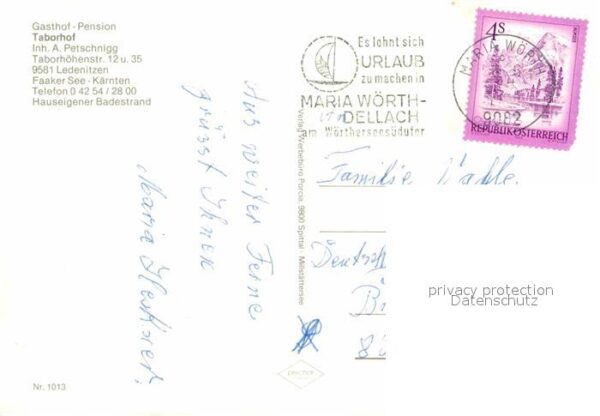 Gasthof - Pension
Taborhof
Inh. A. Petschnigg
Taborhöhenstr. 12 u. 35
9581 Ledenitzen
Faaker See - Kärnten
Telefon 0 42 54 / 28 00
Hauseigener Badestrand
Aus weiter Ferne
grüsst Ihnen
Maria
Nr. 1013
Verlag Werbebüro Porcia, 9800 Spittal - Millstättersee
Es lohnt sich
URLAUB
zu machen in
MARIA WÖRTH-
DELLACH
am Wörtherseesüdufer
MARIA WÖRTH
9082
4S
REPUBLIK ÖSTERREICH
Familie
privacy protection
Datenschutz